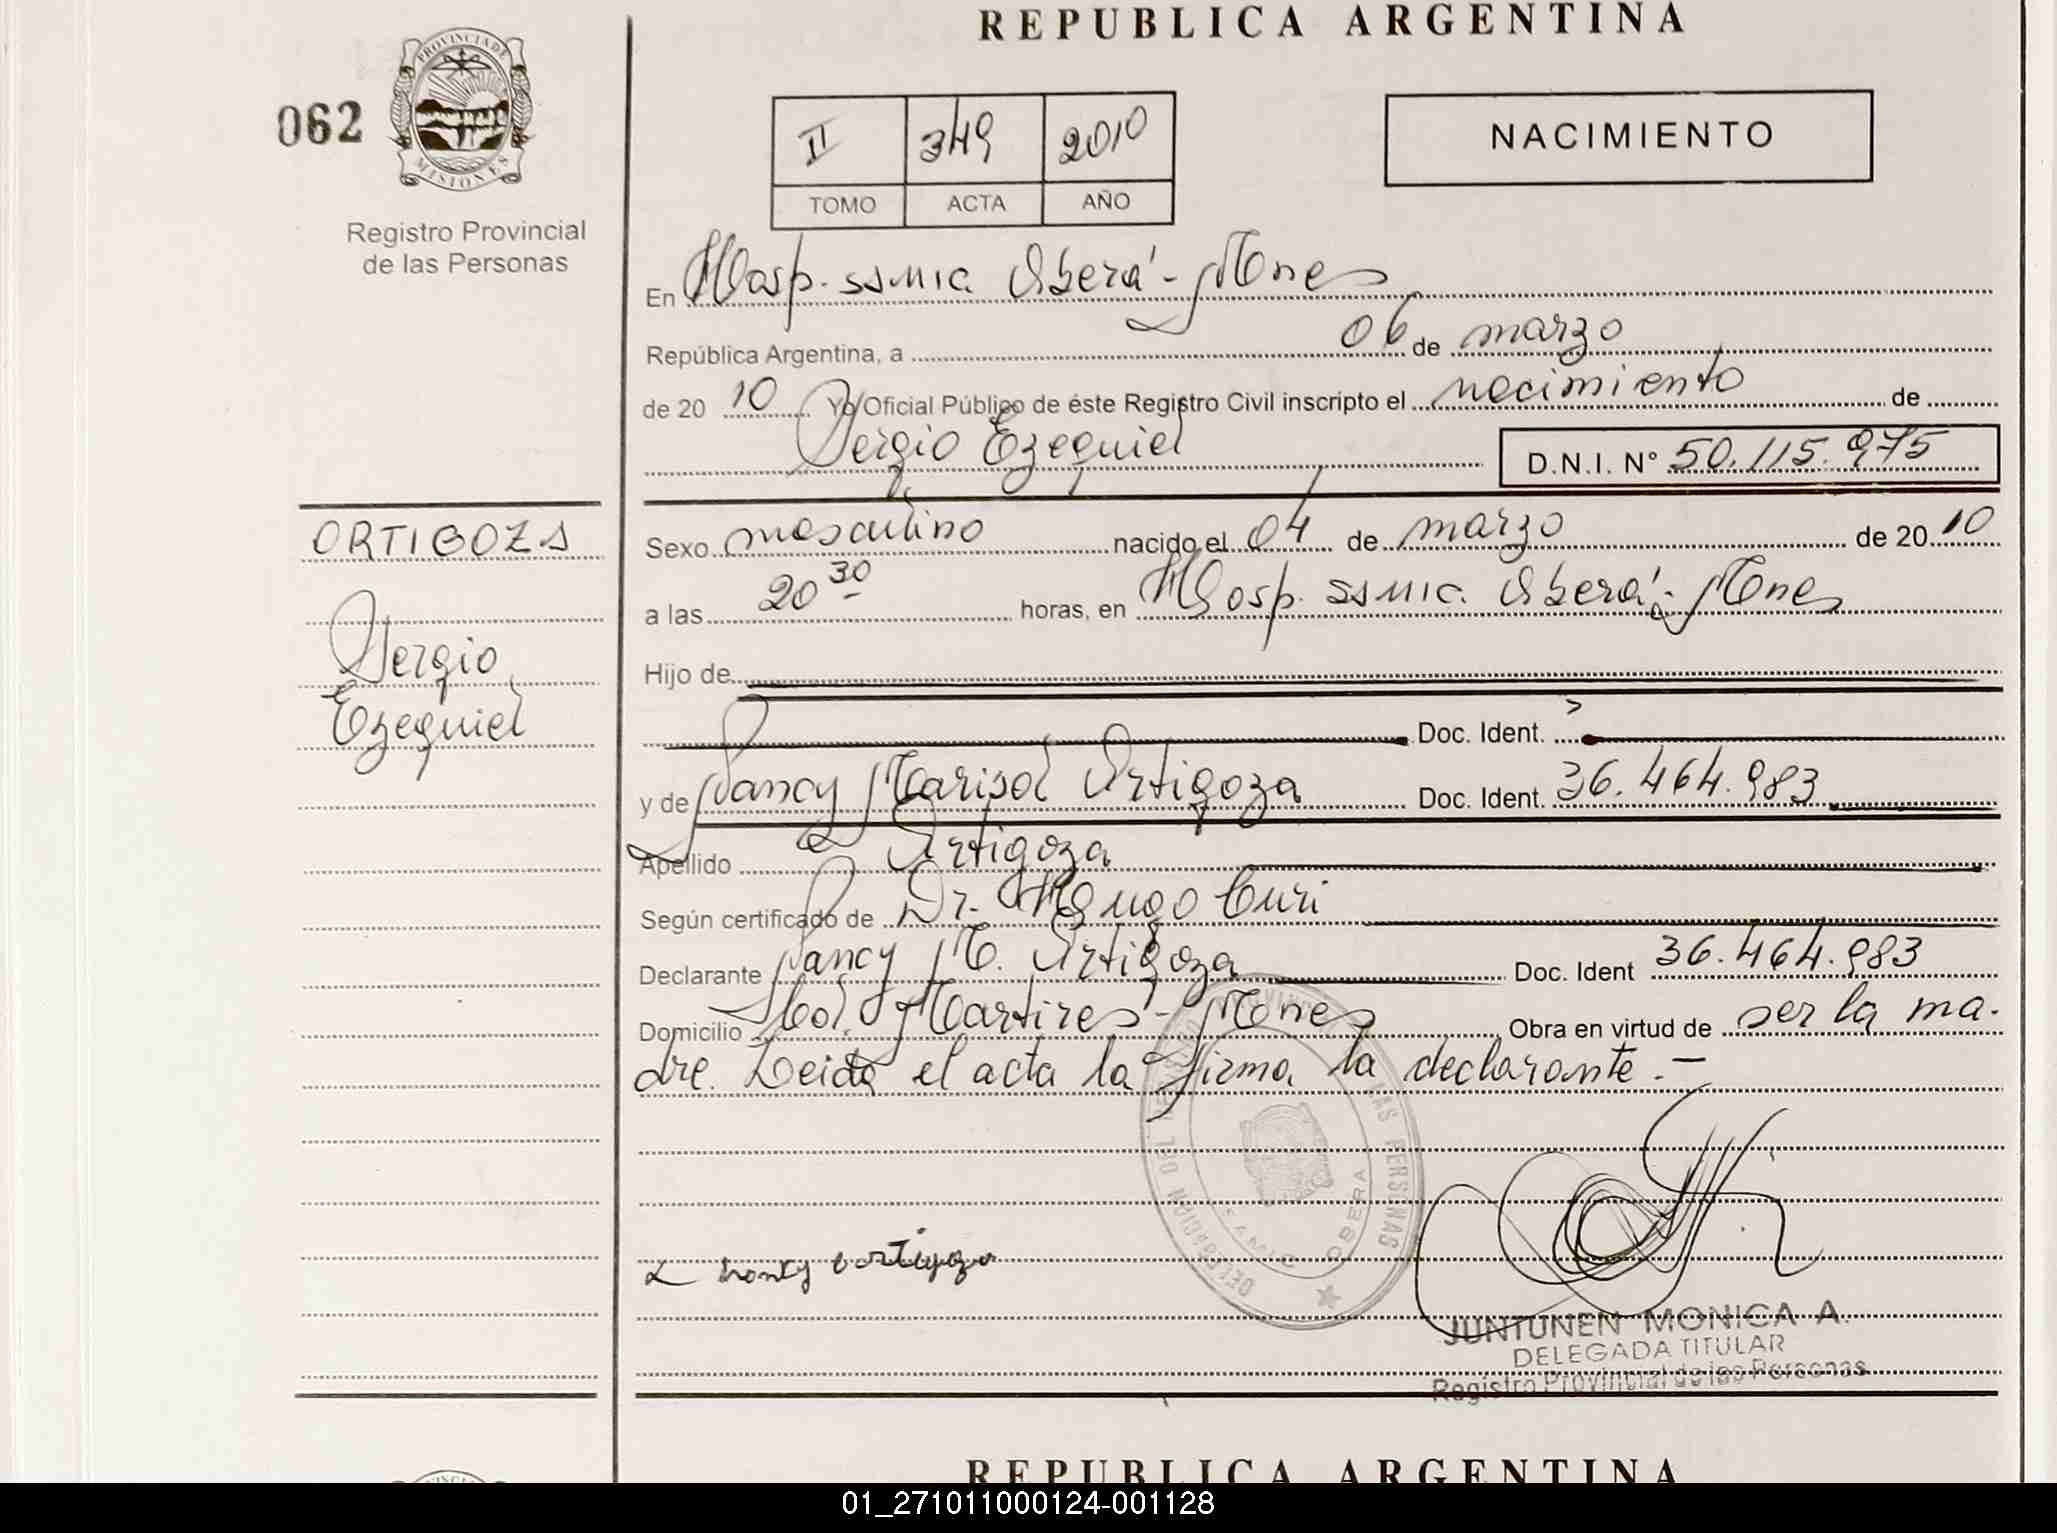 REPUBLICA ARGENTINA
062
PROVINCIA DE
MISIONES
Registro Provincial
de las Personas
II 349 2010
TOMO ACTA AÑO
NACIMIENTO
En Hosp. SSMIC. Oberá - Mnes
República Argentina, a 06 de marzo
de 20 10 Yo Oficial Público de éste Registro Civil inscripto el nacimiento de
Sergio Ezequiel D.N.I. N° 50.115.975
ORTIGOZA
Sergio
Ezequiel
Sexo masculino nacido el 04 de marzo de 20 10
a las 20 30 horas, en Hosp. SSMIC. Oberá - Mnes
Hijo de
Doc. Ident.
y de Nancy Marisol Ortigoza Doc. Ident. 36.464.983
Apellido Ortigoza
Según certificado de Dr. Hugo Curi
Declarante Nancy M. Ortigoza Doc. Ident 36.464.983
Domicilio Mártires - Mnes Obra en virtud de ser la ma-
dre. Leida el acta la firma la declarante.-
DELEGACION DEL REGISTRO PROVINCIAL DE LAS PERSONAS
OBERA
ortigoza
JUNTUNEN MONICA A.
DELEGADA TITULAR
Registro Provincial de las Personas
REPUBLICA ARGENTINA
01_271011000124-001128